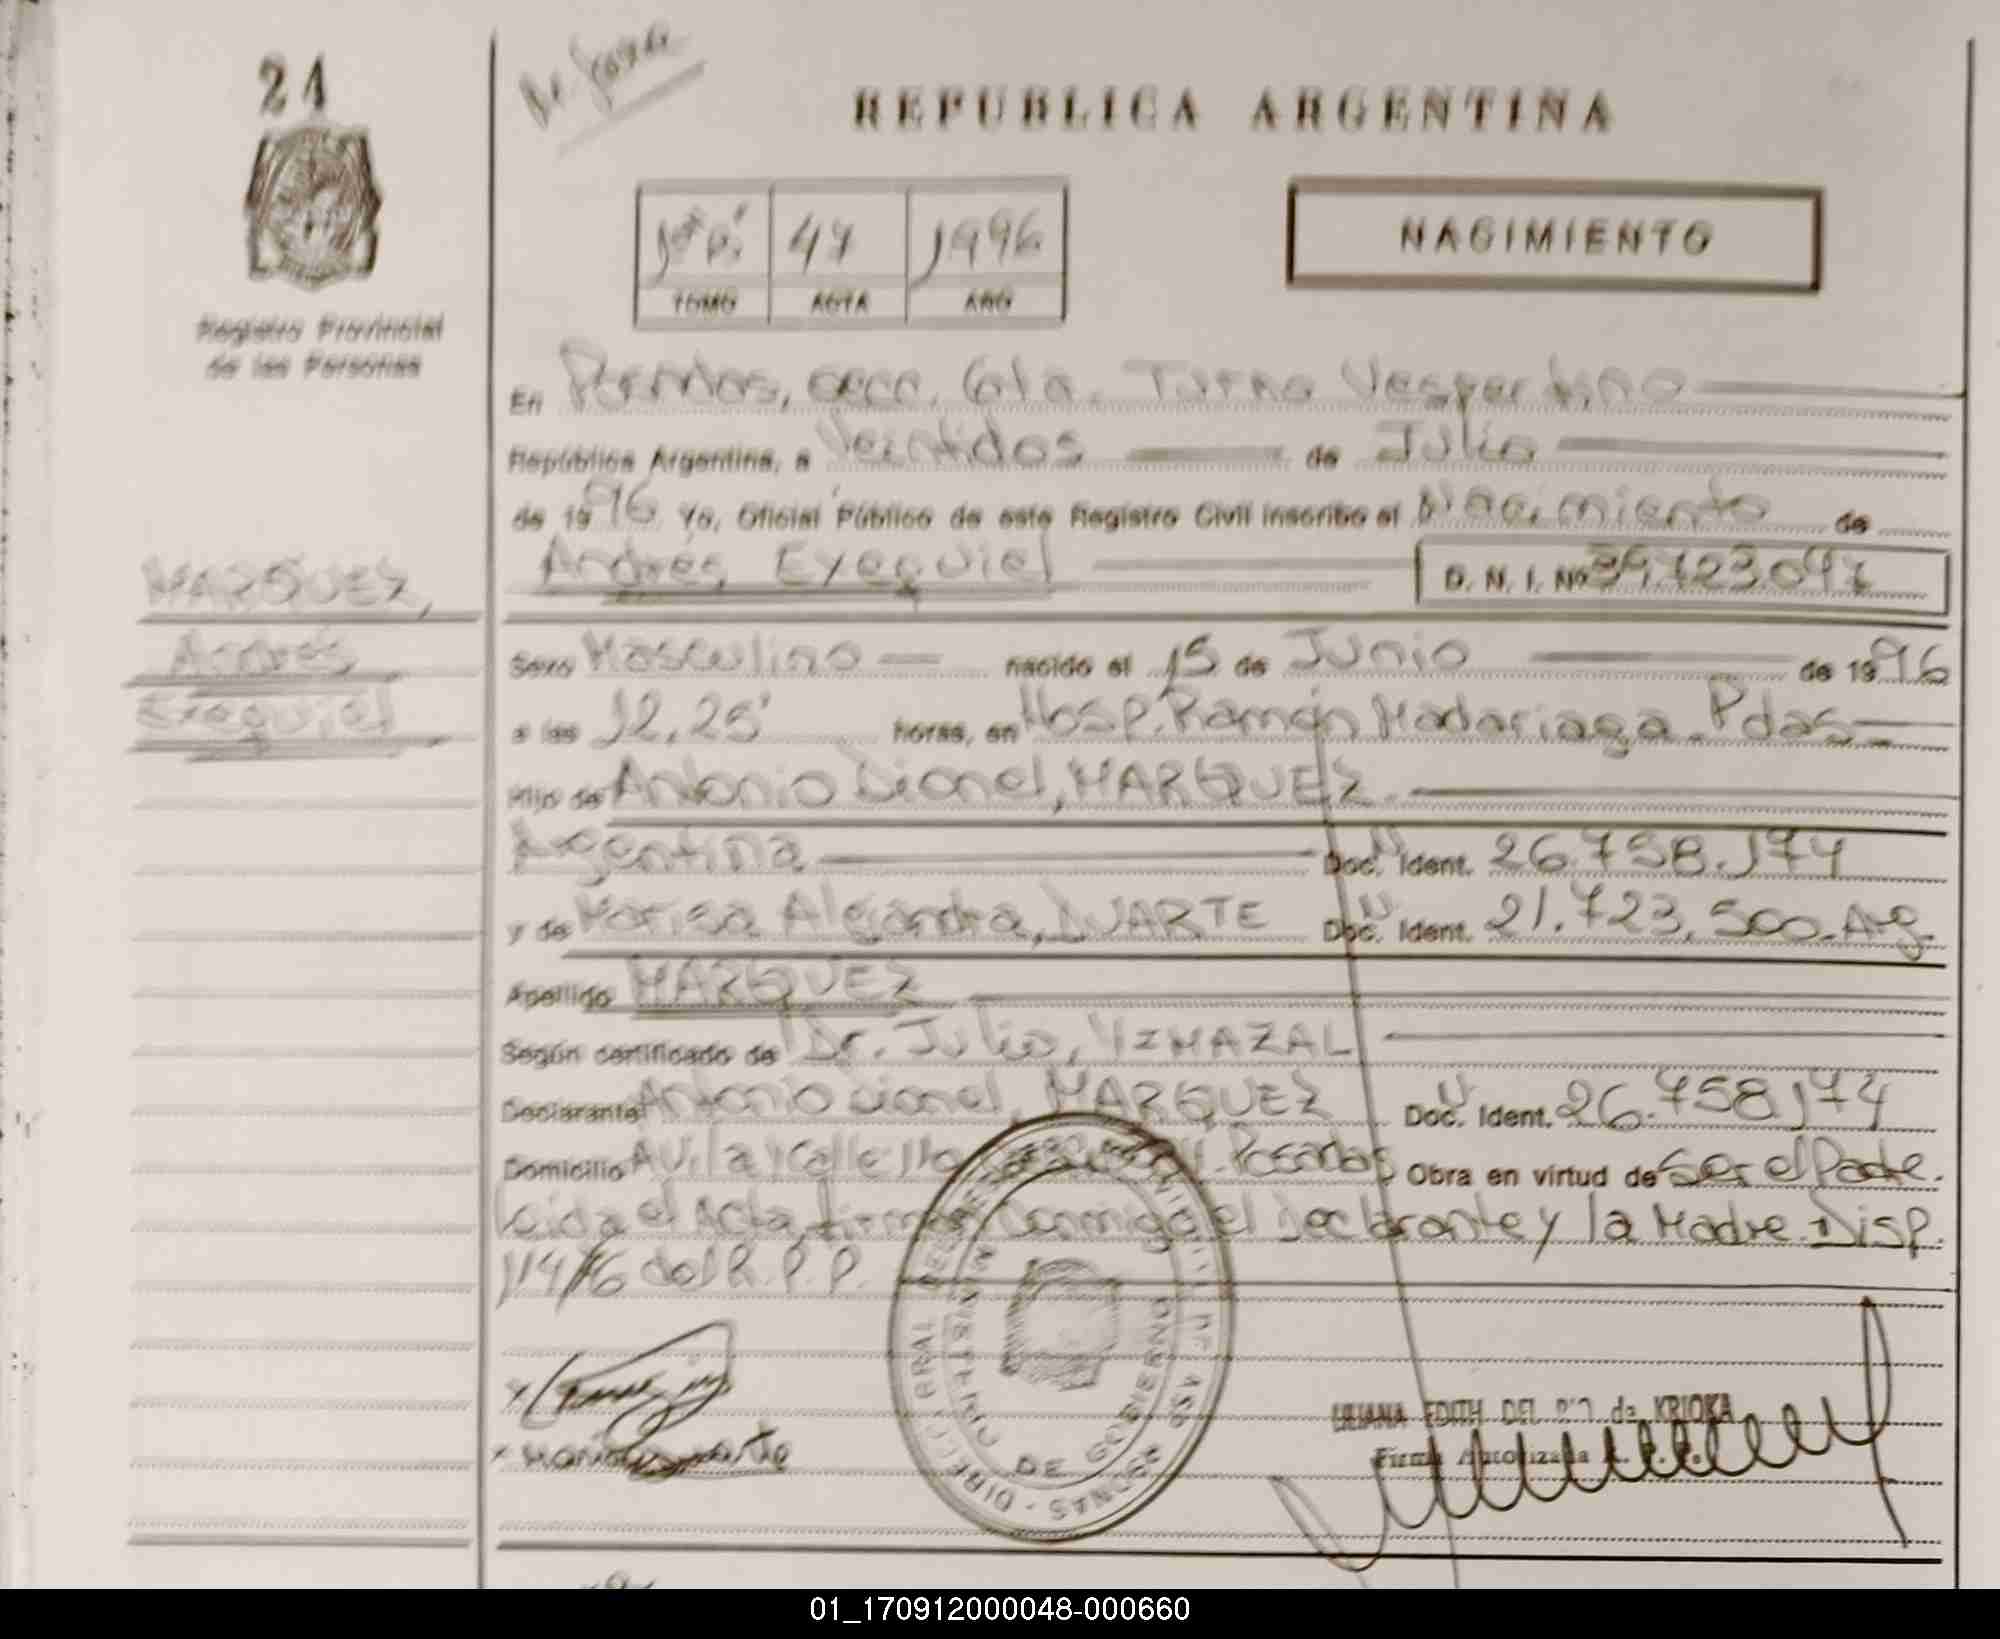 21
REPUBLICA ARGENTINA
47 1996
TOMO ACTA AÑO
NACIMIENTO
Registro Provincial
de las Personas
En Posadas, secc. 6ta. Turno Vespertino
República Argentina, a Veintidos de Julio
de 1996 Yo, Oficial Público de este Registro Civil inscribo el Nacimiento de
Andrés Exequiel D. N. I. Nº 39.723.047
MARQUEZ,
Andrés
Exequiel
Sexo Masculino nacido el 15 de Junio de 1996
a las 12,25' horas, en Hosp. Ramón Madariaga. Pdas
Hijo de Antonio Lionel, MARQUEZ
Argentina Doc. Ident. 26.758.174
y de Marisa Alejandra, DUARTE Doc. Ident. 21.723.500. Arg.
Apellido MARQUEZ
Según certificado de Dr. Julio,
Declarante Antonio Lionel, MARQUEZ Doc. Ident. 26.758.174
Domicilio Posadas Obra en virtud de Ser el Padre.
Leida el Acta, firman Conmigo el Declarante y la Madre. Disp.
114/76 del R.P.P.
LILIANA EDITH DEL de KRIOKA
Firma Autorizada
DE
01_170912000048-000660